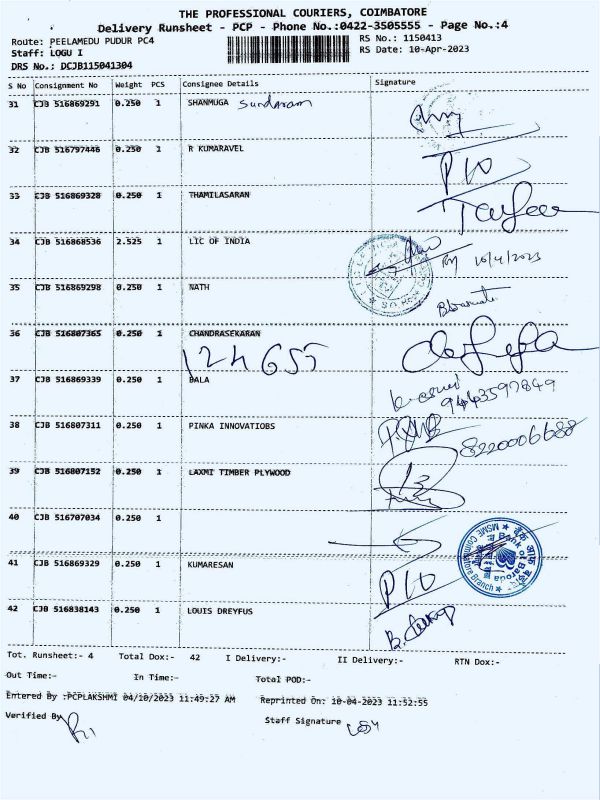 THE PROFESSIONAL COURIERS, COIMBATORE
Delivery Runsheet - PCP - Phone No.:0422-3505555 - Page No.:4
Route: PEELAMEDU PUDUR PC4 RS No.: 1150413
Staff: LOGU I RS Date: 10-Apr-2023
DRS No.: DCJB115041304
S No Consignment No Weight PCS Consignee Details Signature
31 CJB 516869291 0.250 1 SHANMUGA Sundaram
32 CJB 516797446 0.250 1 R KUMARAVEL
33 CJB 516869328 0.250 1 THAMILASARAN
34 CJB 516868536 2.525 1 LIC OF INDIA 10/4/2023
35 CJB 516869298 0.250 1 NATH
36 CJB 516807365 0.250 1 CHANDRASEKARAN
37 CJB 516869339 0.250 1 BALA
9443597849
38 CJB 516807311 0.250 1 PINKA INNOVATIOBS
8220006688
39 CJB 516807152 0.250 1 LAXMI TIMBER PLYWOOD
40 CJB 516707034 0.250 1
Bank of Baroda
MSME Coimbatore Branch
41 CJB 516869329 0.250 1 KUMARESAN
42 CJB 516838143 0.250 1 LOUIS DREYFUS
Tot. Runsheet:- 4 Total Dox:- 42 I Delivery:- II Delivery:- RTN Dox:-
Out Time:- In Time:- Total POD:-
Entered By :PCPLAKSHMI 04/10/2023 11:49:27 AM Reprinted On: 10-04-2023 11:52:55
Verified By Staff Signature